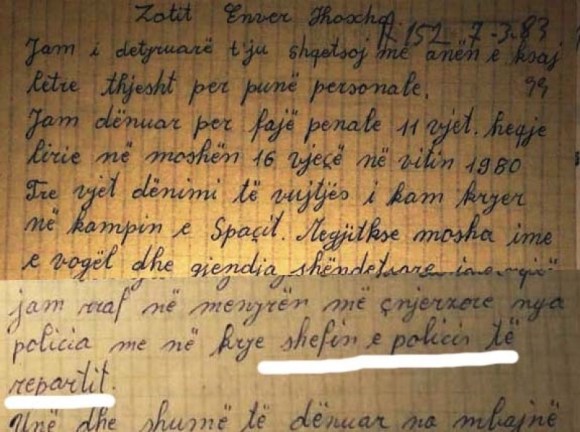 Zotit Enver Hoxha
R. 152 7-3-83
Jam i detyruarë t'ju shqetsoj me anën e ksaj
letre thjesht per punë personale. 99
Jam dënuar per fajë penale 11 vjet. heqje
lirie në moshën 16 vjeçë në vitin 1980
Tre vjet dënimi të vujtjës i kam kryer
në kampin e Spaçit. Megjitkse mosha ime
e vogël dhe gjendja shëndetsore
jam rraf në menyrën më çnjerzore nga
policia me në krye shefin e policis të
repartit.
Unë dhe shumë të dënuar na mbajnë